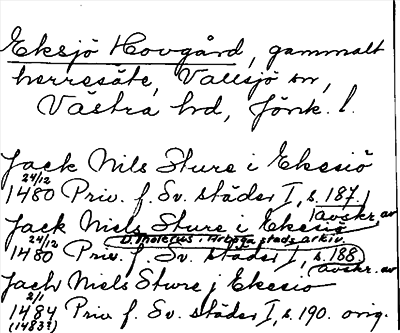 Eksjö Hovgård, gammalt
herresäte, Vallsjö sn,
Västra hd, Jönk. l.
Jack Nils Sture i Ekesiö
24/12
1480 Priv. f. Sv. städer I, s. 187
avskr. av
Jack Niels Sture i Ekesiö
D. Tholerus i Arboga stads arkiv.
24/12
1480 Priv. f. Sv. städer I, s. 188.
avskr. av
Jach Niels Sture j Ekesio
2/1
1484 Priv. f. Sv. städer I, s. 190. orig.
(1483?)